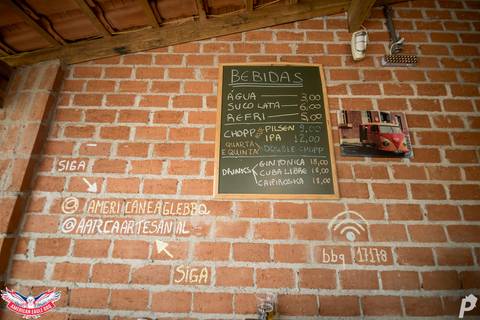 BEBIDAS
ÁGUA 3,00
SUCO LATA 6,00
REFRI 5,00
CHOPP PILSEN 9,00
IPA 12,00
QUARTA E QUINTA DOUBLE CHOPP
DRINKS GIN TÔNICA 18,00
CUBA LIBRE 18,00
CAIPIROSKA 18,00
SIGA
@AMERICANEAGLEBBQ
@AARCAARTESANAL
SIGA
bbq 17178
AMERICAN EAGLE BBQ